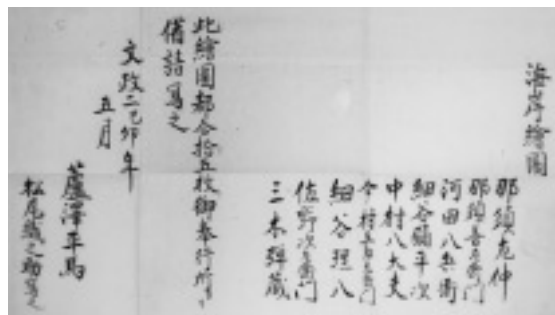 海岸繪圖
那須尤仲
那須喜左衛門
河田八兵衛
細谷彌平次
中村八大夫
今村五郎左衛門
細谷理八
佐野次左衛門
三木弾蔵
此繪圖都合拾五枚御奉行所より
借請寫之
文政二己卯年
五月
蘆澤平馬
松尾織之助寫之